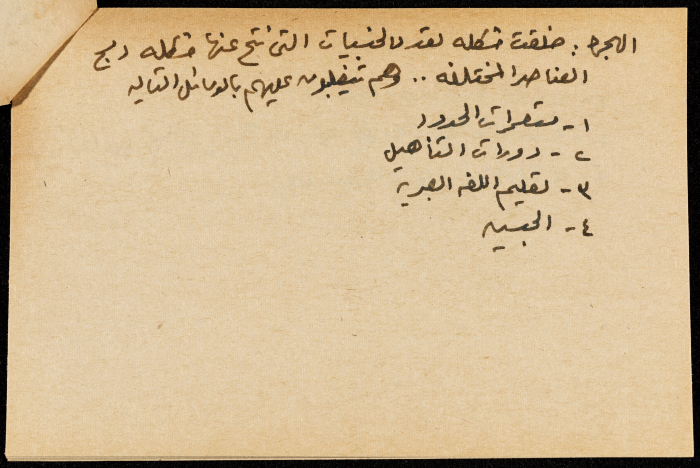 الهجره : خلقت مشكله تعدد الجنسيات التى نتج عنها مشكله دمج
العناصر المختلفه .. وهم يتغلبون عليهم بالوسائل التاليه
١- مستعمرات الحدود
٢- دورات التأهيل
٣- تعليم اللغه العبريه
٤- الجنسيه